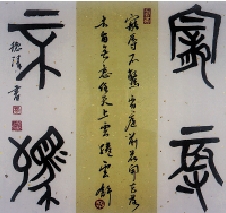 寵辱
寵辱不驚看庭前花開花落
去留無意任天上雲捲雲舒
不驚
書